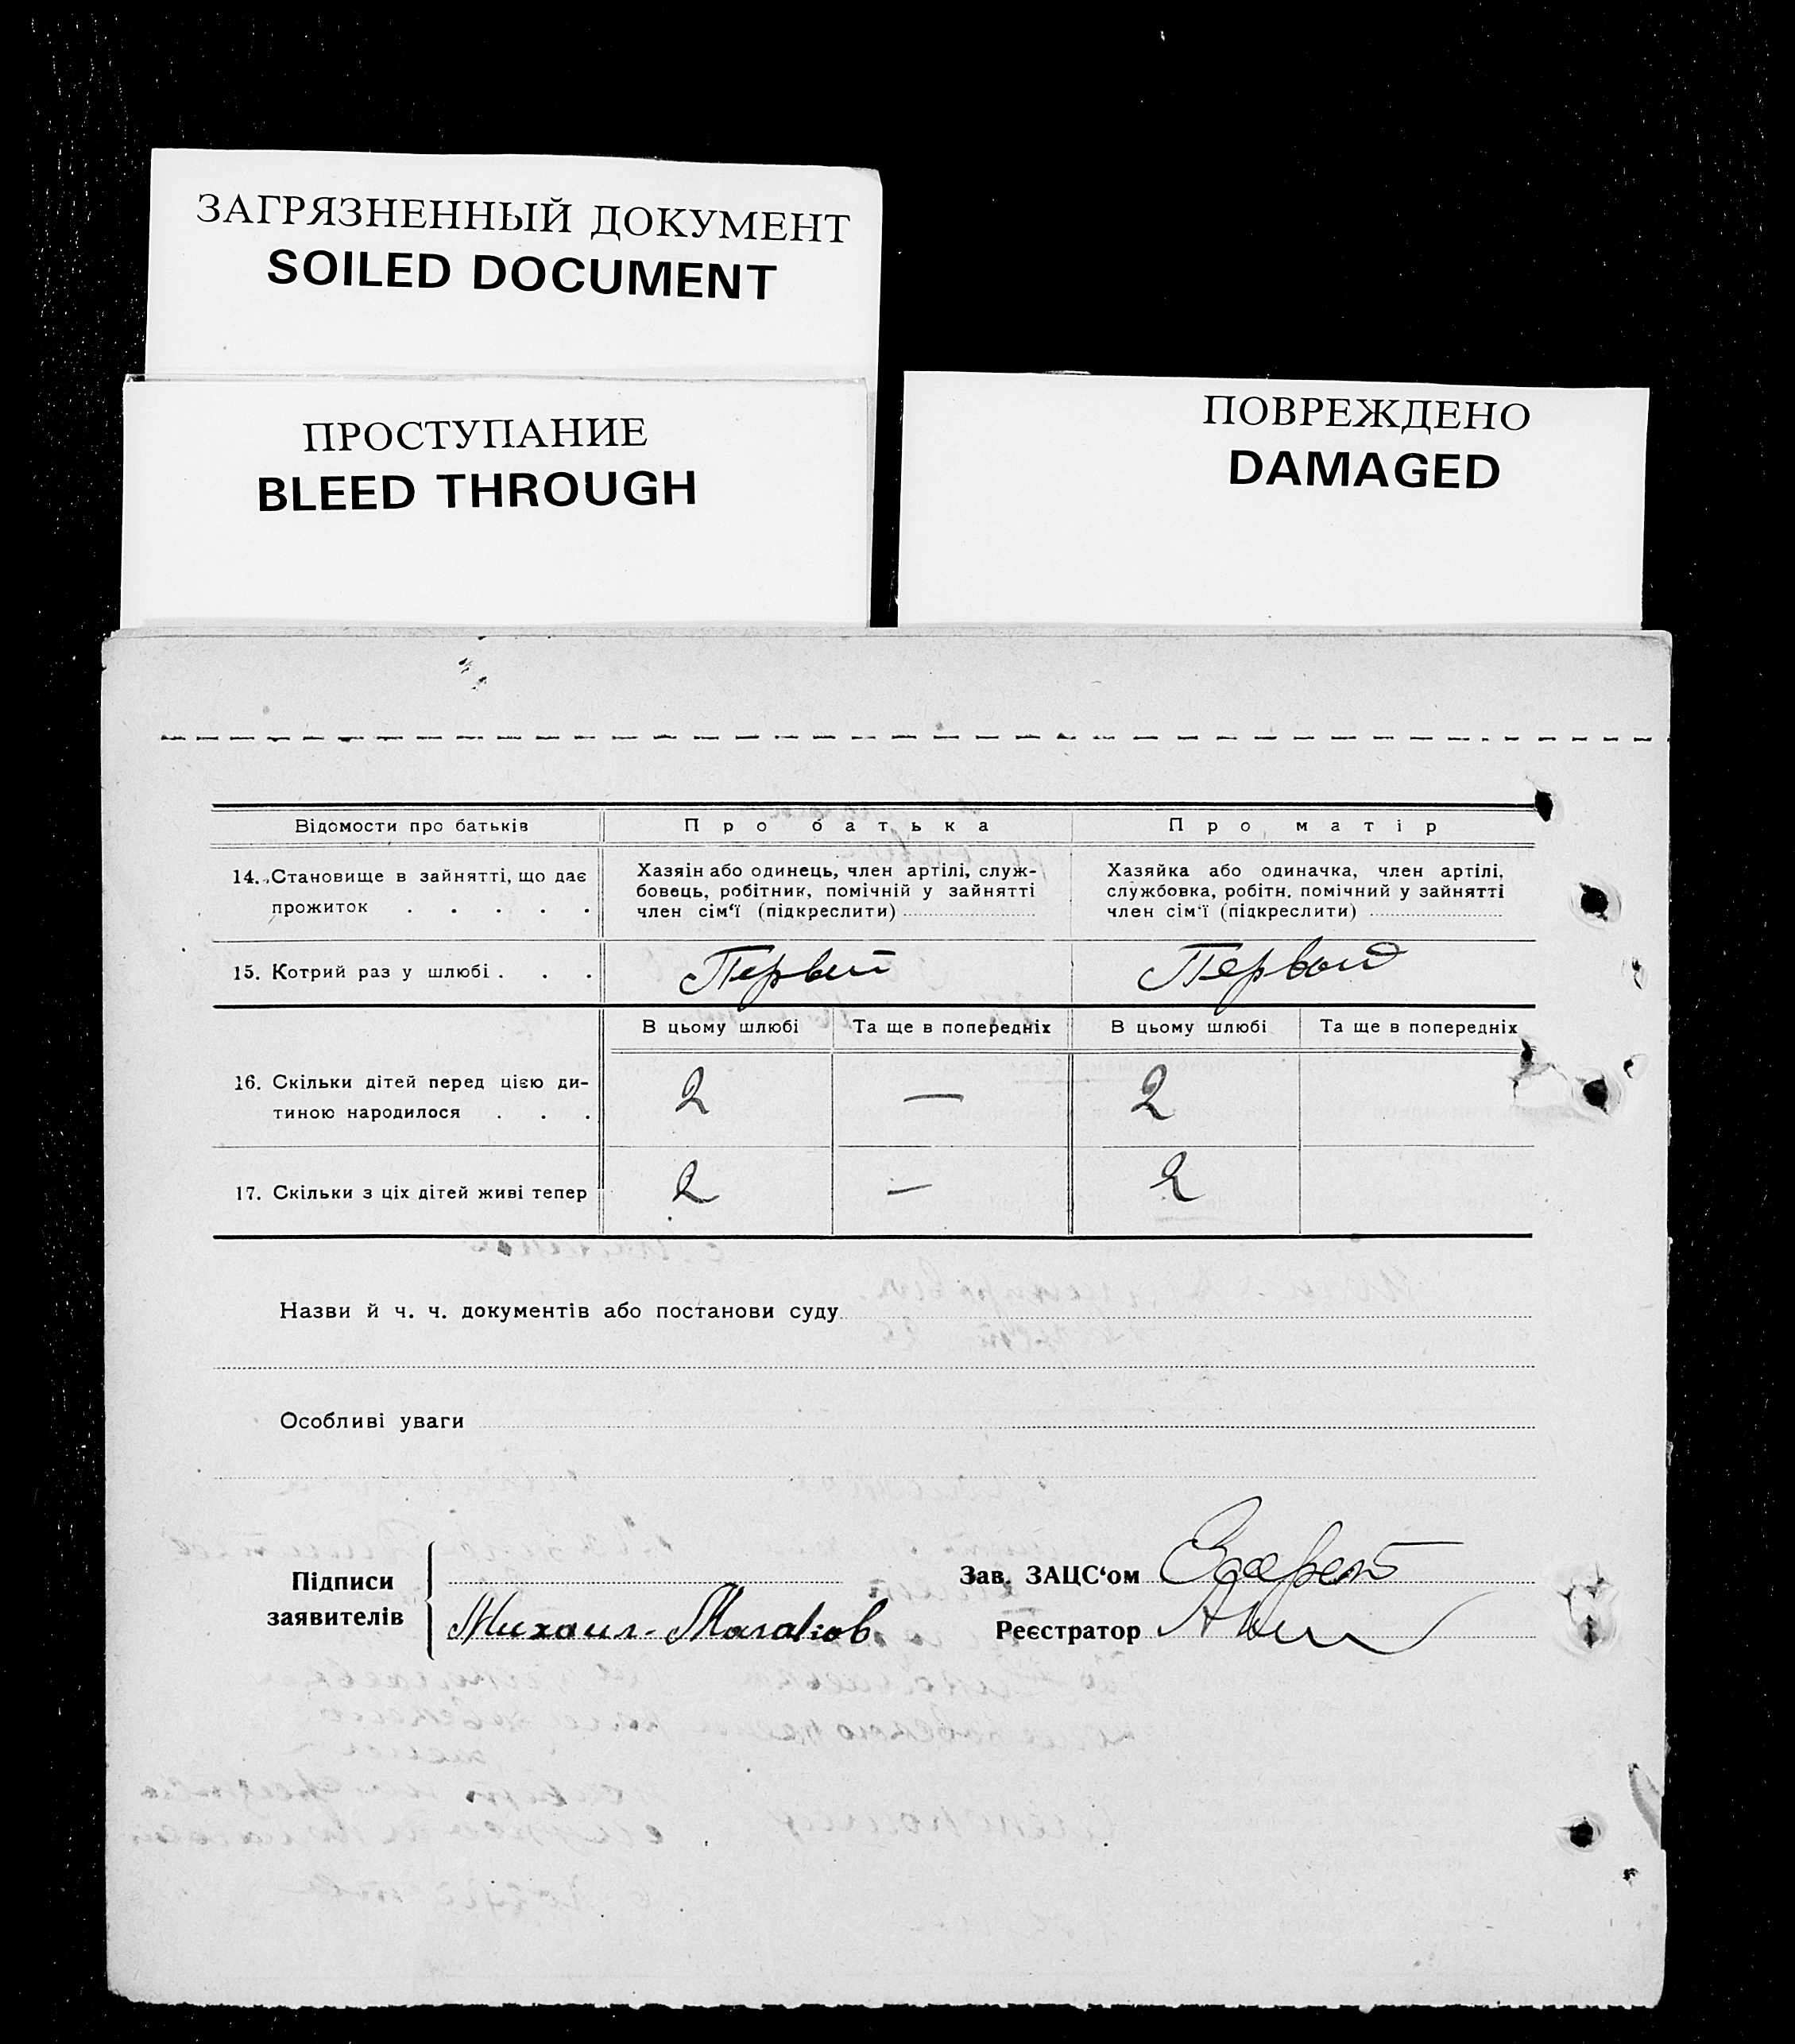 ЗАГРЯЗНЕННЫЙ ДОКУМЕНТ
SOILED DOCUMENT
ПРОСТУПАНИЕ
BLEED THROUGH
ПОВРЕЖДЕНО
DAMAGED
Відомости про батьків Про батька Про матір
14. Становище в зайнятті, що дає
прожиток . . . . .
Хазяін або одинець, член артілі, служ-
бовець, робітник, помічній у зайнятті
член сім‘ї (підкреслити)
Хазяйка або одиначка, член артілі,
службовка, робітн. помічний у зайнятті
член сім‘ї (підкреслити)
15. Котрий раз у шлюбі . . . Первый Первый
В цьому шлюбі Та ще в попередніх В цьому шлюбі Та ще в попередніх
16. Скільки дітей перед цією ди-
тиною народилося . . .
2 — 2
17. Скільки з ціх дітей живі тепер 2 — 2
Назви й ч. ч. документів або постанови суду
Особливі уваги
Підписи
заявителів
Михаил
Зав. ЗАЦС‘ом
Реєстратор